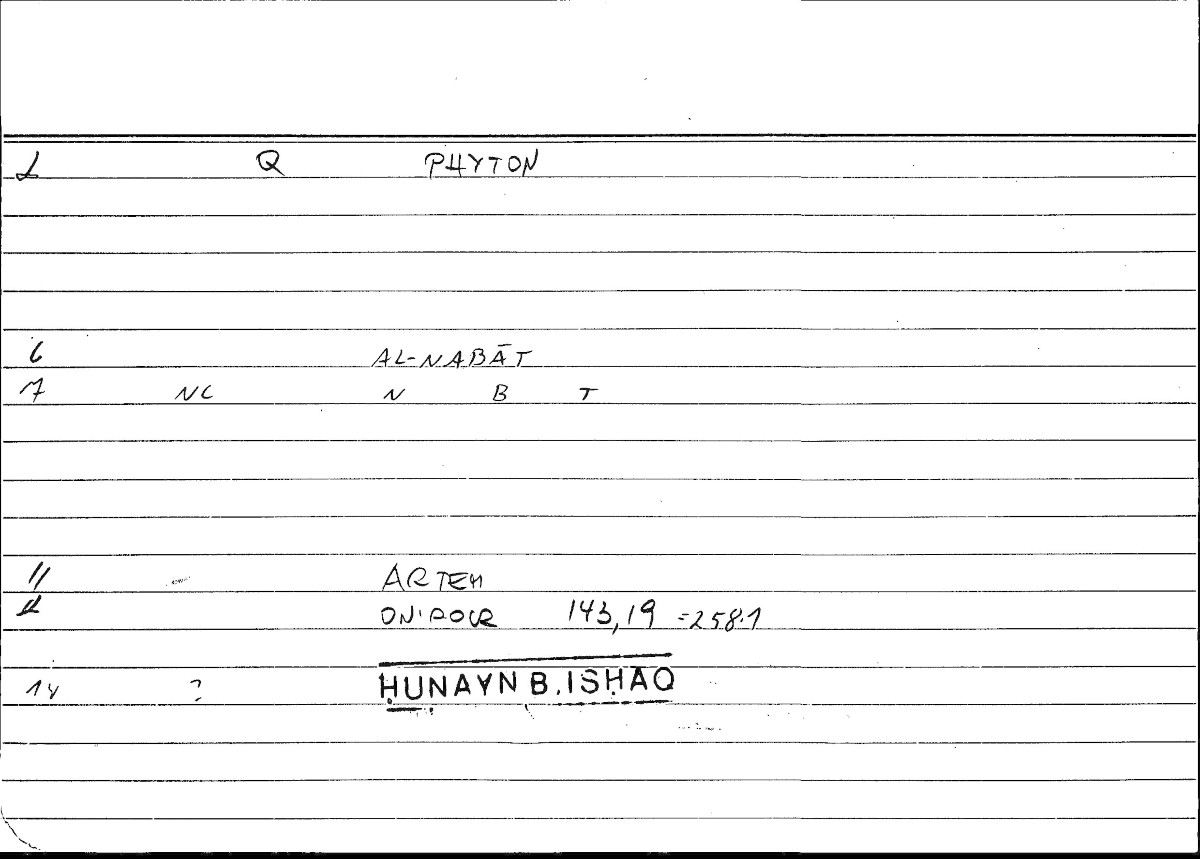 2 Q PHYTON
6 AL-NABĀT
7 NC N B T
11 ARTEM
ONIROCR 143,19 =258.1
14 ? ḤUNAYN B. ISḤAQ